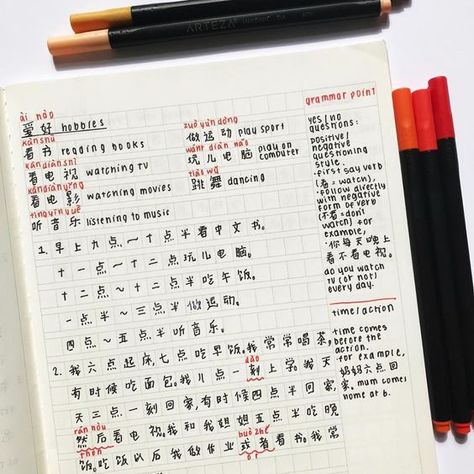 ARTEZA
ài hào
爱好 hobbies
kàn shū
看书 reading books
kàn diàn shì
看电视 watching TV
kàn diàn yǐng
看电影 watching movies
tīng yīn yuè
听音乐 listening to music
zuò yùn dòng
做运动 play sport
wánr diàn nǎo
玩儿电脑 play on computer
tiào wǔ
跳舞 dancing
1. 早上九点~十点半看中文书。
十一点~十二点玩儿电脑。
十二点~十二点半吃午饭。
一点半~三点半做运动。
四点~五点半听音乐。
2. 我六点起床，七点吃早饭。我常常喝茶，
有时候吃面包。我八点一刻上学。我天
天三点一刻回家，有时候四点半回家
然后看电视。我和我姐姐五点半吃晚
饭。吃饭以后我做作业或者看书。我常
kè
rán hòu
huò zhě
grammar point
yes/no
questions:
positive/
negative
questioning
style.
- first say verb
(看 = watch),
- follow directly
with negative
form of verb
(不看 = don't
watch) for
example,
你每天晚上
看不看电视。
do you watch
TV (or not)
every day.
time/action
time comes
before the
action.
for example,
妈妈六点回
家, mum comes
home at 6.